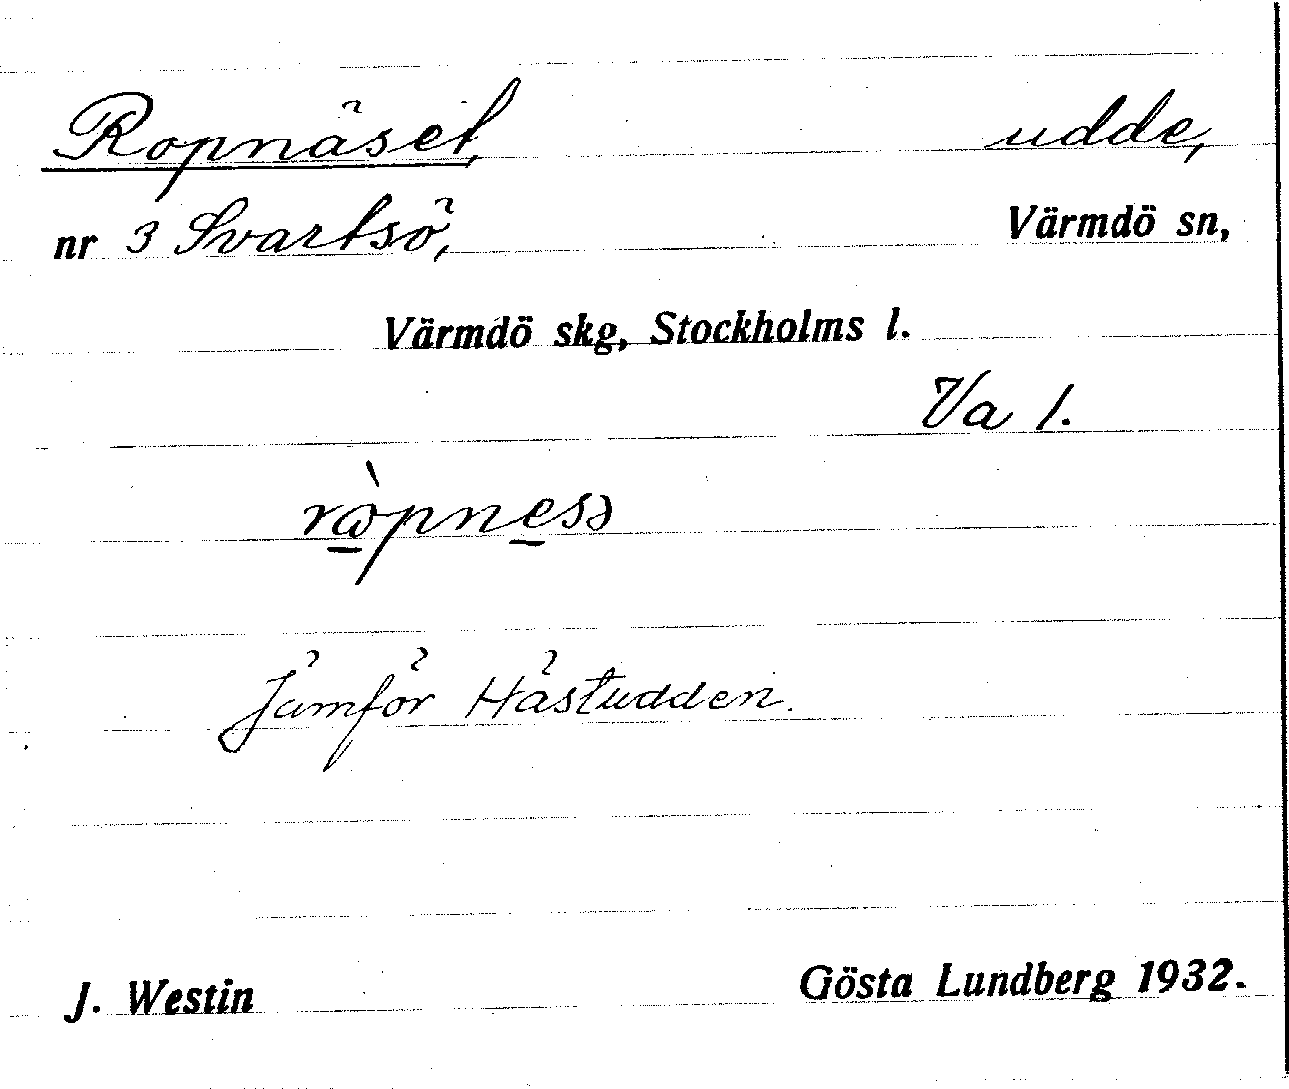 Ropnäset, udde,
nr 3 Svartsö, Värmdö sn,
Värmdö skg, Stockholms l.
Va 1.
Jämför Hästudden.
J. Westin Gösta Lundberg 1932.